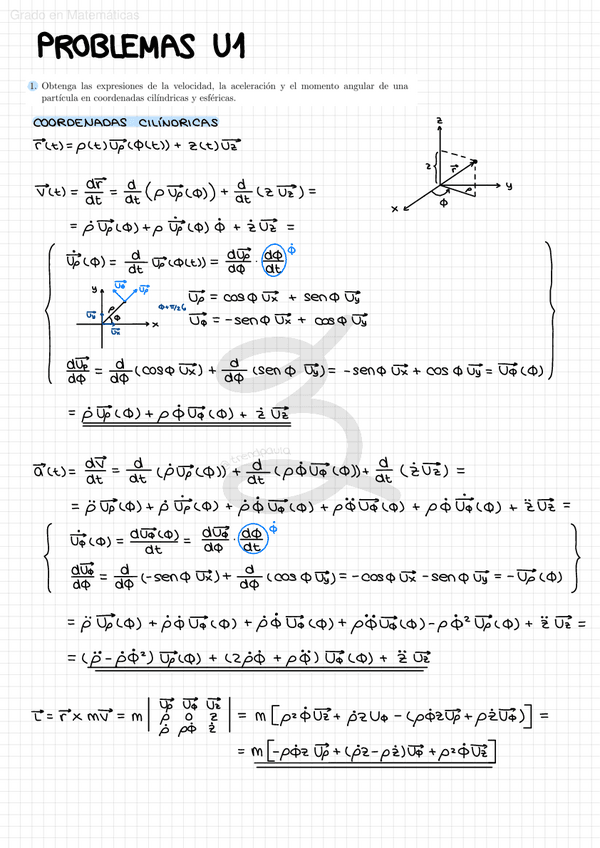 Grado en Matemáticas
PROBLEMAS U1
1. Obtenga las expresiones de la velocidad, la aceleración y el momento angular de una
partícula en coordenadas cilíndricas y esféricas.
COORDENADAS CILÍNDRICAS
r⃗(t) = ρ(t) U⃗ρ(Φ(t)) + z(t) U⃗z
z
z r⃗
y
x Φ ρ
v⃗(t) = dr⃗/dt = d/dt (ρ U⃗ρ(Φ)) + d/dt (z U⃗z) =
= ρ̇ U⃗ρ(Φ) + ρ U⃗̇ρ(Φ) Φ̇ + ż U⃗z =
U⃗̇ρ(Φ) = d/dt U⃗ρ(Φ(t)) = dU⃗ρ/dΦ · dΦ/dt Φ̇
y U⃗Φ U⃗ρ
U⃗y ρ Φ Φ+π/2
U⃗x x
U⃗ρ = cosΦ U⃗x + senΦ U⃗y
U⃗Φ = -senΦ U⃗x + cosΦ U⃗y
dU⃗ρ/dΦ = d/dΦ (cosΦ U⃗x) + d/dΦ (senΦ U⃗y) = -senΦ U⃗x + cosΦ U⃗y = U⃗Φ(Φ)
= ρ̇ U⃗ρ(Φ) + ρ Φ̇ U⃗Φ(Φ) + ż U⃗z
a⃗(t) = dv⃗/dt = d/dt (ρ̇ U⃗ρ(Φ)) + d/dt (ρ Φ̇ U⃗Φ(Φ)) + d/dt (ż U⃗z) =
= ρ̈ U⃗ρ(Φ) + ρ̇ U⃗̇ρ(Φ) + ρ̇ Φ̇ U⃗Φ(Φ) + ρ Φ̈ U⃗Φ(Φ) + ρ Φ̇ U⃗̇Φ(Φ) + z̈ U⃗z =
U⃗̇Φ(Φ) = dU⃗Φ(Φ)/dt = dU⃗Φ/dΦ · dΦ/dt Φ̇
dU⃗Φ/dΦ = d/dΦ (-senΦ U⃗x) + d/dΦ (cosΦ U⃗y) = -cosΦ U⃗x - senΦ U⃗y = -U⃗ρ(Φ)
= ρ̈ U⃗ρ(Φ) + ρ̇ Φ̇ U⃗Φ(Φ) + ρ̇ Φ̇ U⃗Φ(Φ) + ρ Φ̈ U⃗Φ(Φ) - ρ Φ̇² U⃗ρ(Φ) + z̈ U⃗z =
= (ρ̈ - ρ Φ̇²) U⃗ρ(Φ) + (2ρ̇Φ̇ + ρΦ̈) U⃗Φ(Φ) + z̈ U⃗z
L⃗ = r⃗ × mv⃗ = m | U⃗ρ U⃗Φ U⃗z ; ρ 0 z ; ρ̇ ρΦ̇ ż | = m [ρ²Φ̇ U⃗z + ρ̇z UΦ - (ρΦ̇z U⃗ρ + ρż U⃗Φ)] =
= m [-ρΦ̇z U⃗ρ + (ρ̇z - ρż) U⃗Φ + ρ²Φ̇ U⃗z]